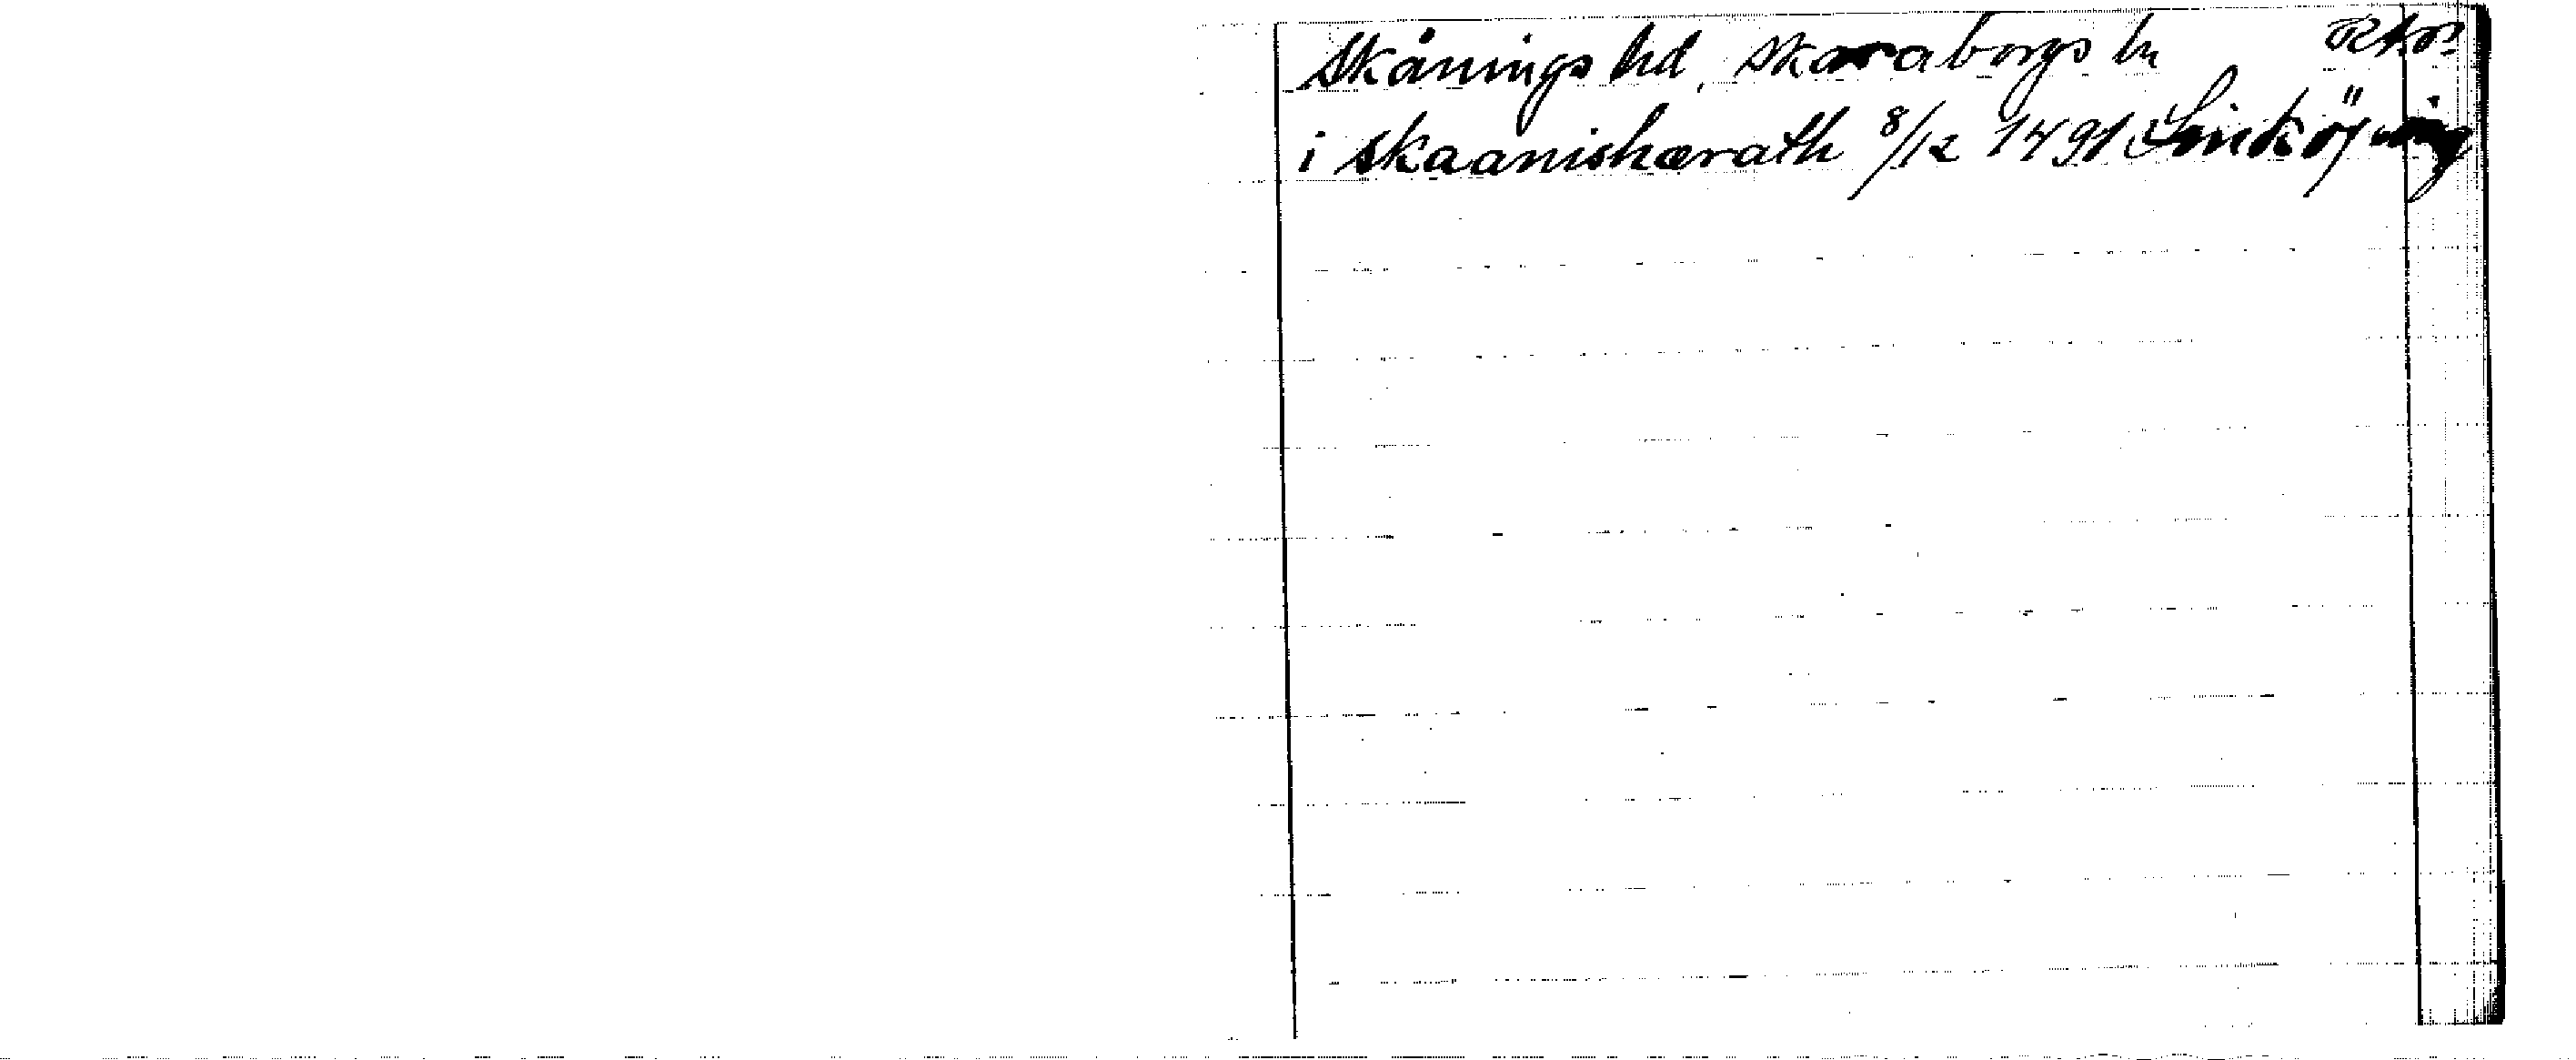 Skånings hd, Skaraborgs ln
i skaanishærath 8/12 1491 Linköping